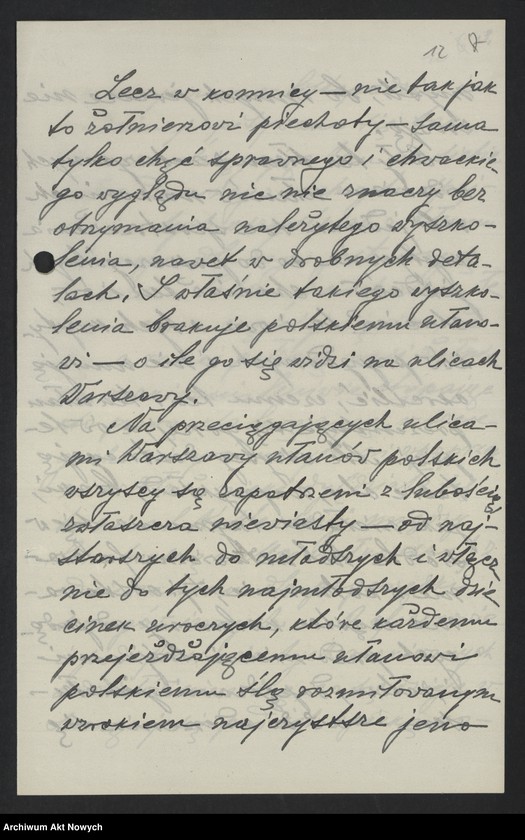 12 8
Lecz w konnicy — nie tak jak
to żołnierzowi piechoty — sama
tylko chęć sprawnego i chwackie-
go wyglądu nic nie znaczy bez
otrzymania należytego wyszko-
lenia, nawet w drobnych deta-
lach. I właśnie takiego wyszko-
lenia brakuje polskiemu ułano-
wi — o ile go się widzi na ulicach
Warszawy.
Na przeciągających ulica-
mi Warszawy ułanów polskich
wszyscy są zapatrzeni z lubością,
zwłaszcza niewiasty — od naj-
starszych do młodszych i włącz
nie do tych najmłodszych dzie
cinek uroczych, które każdemu
przejeżdżającemu ułanowi
polskiemu ślą rozmiłowanym
wzrokiem najczystsze jeno
Archiwum Akt Nowych